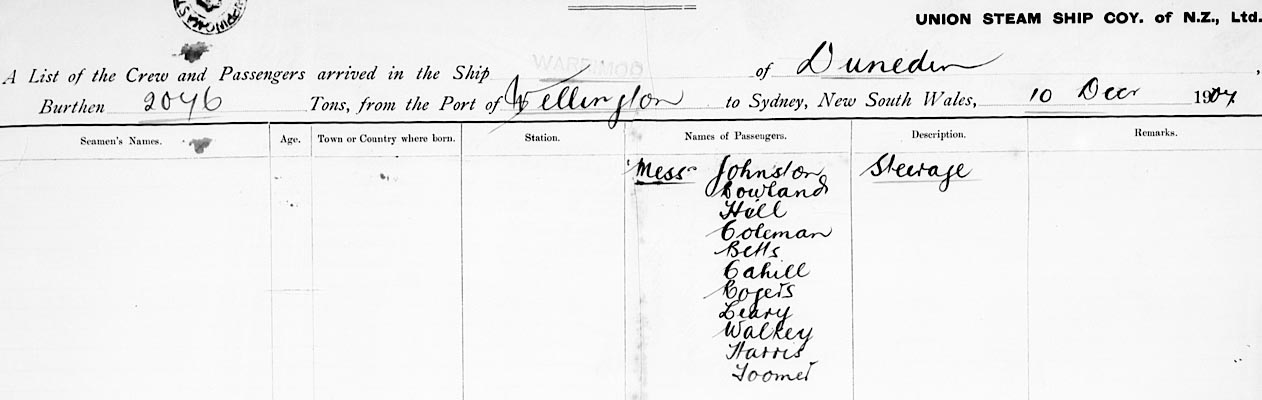 UNION STEAM SHIP COY. of N.Z., Ltd.
A List of the Crew and Passengers arrived in the Ship WARRIMOO of Dunedin,
Burthen 2076 Tons, from the Port of Wellington to Sydney, New South Wales, 10 Decr 1907.
Seamen's Names. Age. Town or Country where born. Station. Names of Passengers. Description. Remarks.
Messrs Johnston Steerage
Rowland
Hill
Coleman
Betts
Cahill
Rogers
Leary
Walkey
Harris
Toomer